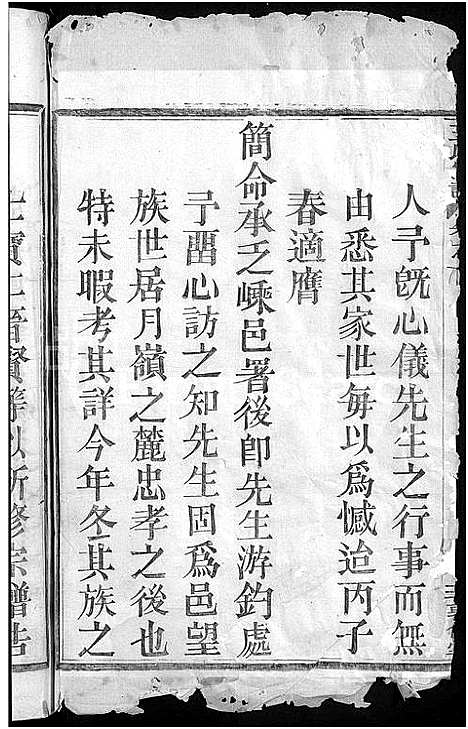 人予旣心儀先生之行事而無
由悉其家世每以爲憾迨丙子
春適膺
簡命承乏嵊邑署後卽先生游釣處
予畱心訪之知先生固爲邑望
族世居月嶺之麓忠孝之後也
特未暇考其詳今年冬其族之
士晉賢等以新修宗譜告